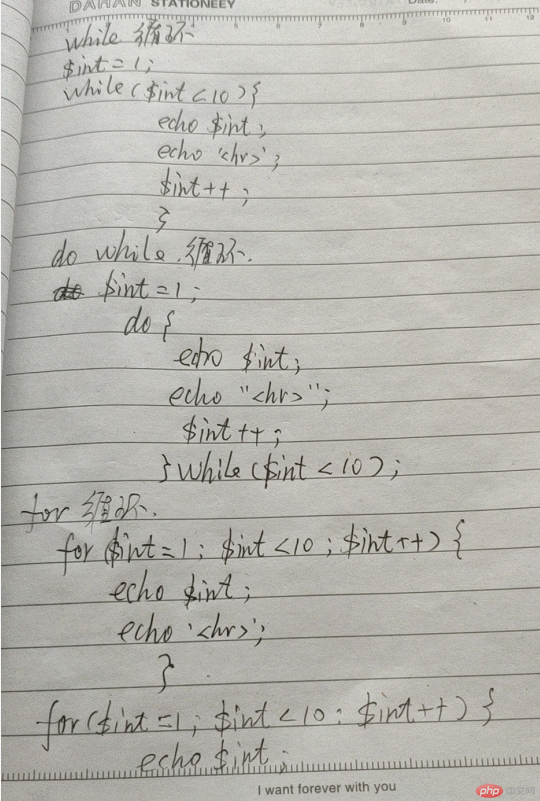 DAHAN STATIONEEY Date:
while 循环
$int = 1;
while ($int < 10) {
echo $int;
echo '<hr>';
$int++;
}
do while 循环.
$int = 1;
do {
echo $int;
echo "<hr>";
$int++;
} while ($int < 10);
for 循环.
for ($int = 1; $int < 10; $int++) {
echo $int;
echo '<hr>';
}
for ($int = 1; $int < 10; $int++) {
echo $int;
I want forever with you
php 中文网